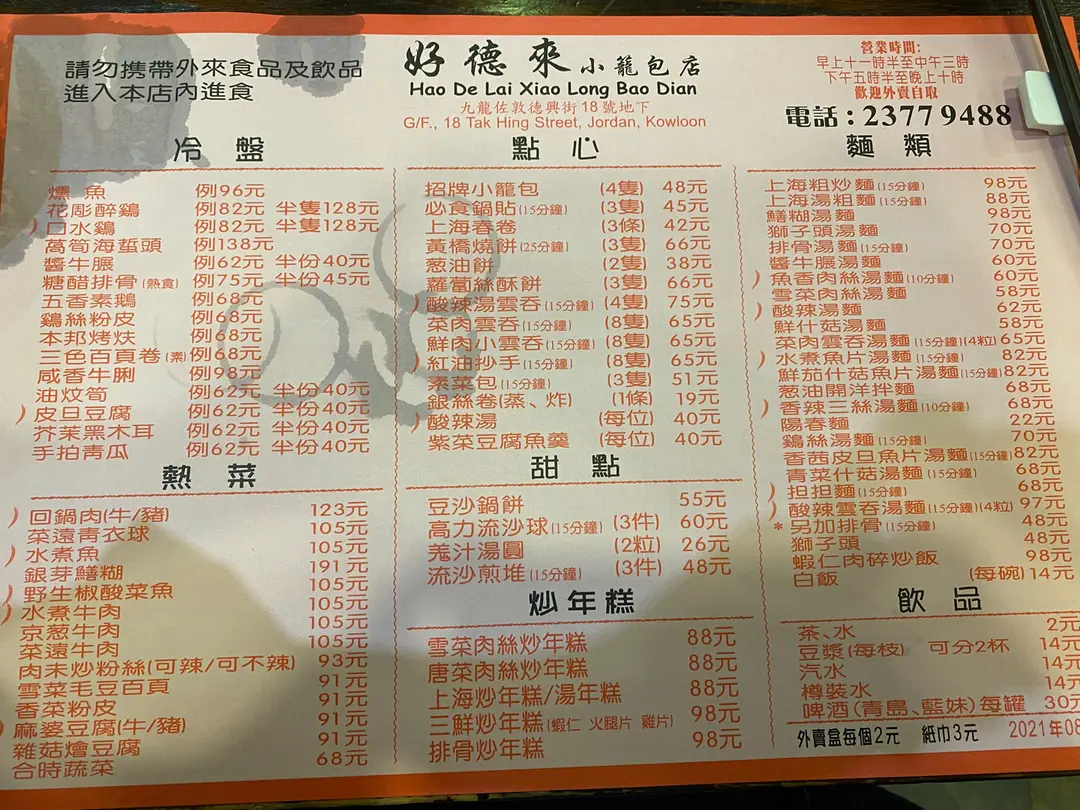 請勿携帶外來食品及飲品
進入本店內進食
好德來小籠包店
Hao De Lai Xiao Long Bao Dian
九龍佐敦德興街18號地下
G/F., 18 Tak Hing Street, Jordan, Kowloon
營業時間:
早上十一時半至中午三時
下午五時半至晚上十時
歡迎外賣自取
電話：2377 9488
冷盤
燻魚 例96元
花彫醉鷄 例82元 半隻128元
)口水鷄 例82元 半隻128元
萵筍海蜇頭 例138元
醬牛𦟌 例62元 半份40元
糖醋排骨(熱食) 例75元 半份45元
五香素鵝 例68元
鷄絲粉皮 例68元
本邦烤麩 例68元
三色百頁卷(素) 例68元
咸香牛脷 例98元
油炆筍 例62元 半份40元
)皮旦豆腐 例62元 半份40元
芥茉黑木耳 例62元 半份40元
手拍青瓜 例62元 半份40元
熱菜
)回鍋肉(牛/豬) 123元
菜遠青衣球 105元
)水煮魚 105元
銀芽鱔糊 191元
)野生椒酸菜魚 105元
)水煮牛肉 105元
京葱牛肉 105元
菜遠牛肉 105元
肉末炒粉絲(可辣/可不辣) 93元
雪菜毛豆百頁 91元
香菜粉皮 91元
)麻婆豆腐(牛/豬) 91元
雜菇燴豆腐 91元
合時蔬菜 68元
點心
招牌小籠包 (4隻) 48元
必食鍋貼(15分鐘) (3隻) 45元
上海春卷 (3條) 42元
黃橋燒餅(25分鐘) (3隻) 66元
葱油餅 (2隻) 38元
蘿蔔絲酥餅 (3隻) 66元
)酸辣湯雲吞(15分鐘) (4隻) 75元
菜肉雲吞(15分鐘) (8隻) 65元
鮮肉小雲吞(15分鐘) (8隻) 65元
)紅油抄手(15分鐘) (8隻) 65元
素菜包(15分鐘) (3隻) 51元
銀絲卷(蒸、炸) (1條) 19元
)酸辣湯 (每位) 40元
紫菜豆腐魚羹 (每位) 40元
甜點
豆沙鍋餅 55元
高力流沙球(15分鐘) (3件) 60元
蔴汁湯圓 (2粒) 26元
流沙煎堆(15分鐘) (3件) 48元
炒年糕
雪菜肉絲炒年糕 88元
唐菜肉絲炒年糕 88元
上海炒年糕/湯年糕 88元
三鮮炒年糕(蝦仁 火腿片 雞片) 98元
排骨炒年糕 98元
麵類
上海粗炒麵(15分鐘) 98元
上海湯粗麵(15分鐘) 88元
鱔糊湯麵 98元
獅子頭湯麵 70元
排骨湯麵(15分鐘) 70元
醬牛𦟌湯麵 60元
)魚香肉絲湯麵(10分鐘) 60元
雪菜肉絲湯麵 58元
)酸辣湯麵 62元
鮮什菇湯麵 58元
菜肉雲吞湯麵(15分鐘)(4粒) 65元
)水煮魚片湯麵(15分鐘) 82元
鮮茄什菇魚片湯麵(15分鐘) 82元
葱油開洋拌麵 68元
)香辣三絲湯麵(10分鐘) 68元
陽春麵 22元
鷄絲湯麵(15分鐘) 70元
香茜皮旦魚片湯麵(15分鐘) 82元
青菜什菇湯麵(15分鐘) 68元
)担担麵(15分鐘) 68元
)酸辣雲吞湯麵(15分鐘)(4粒) 97元
*另加排骨(15分鐘) 48元
獅子頭 48元
蝦仁肉碎炒飯 98元
白飯 (每碗) 14元
飲品
茶、水 2元
豆漿(每枝) 可分2杯 14元
汽水 14元
樽裝水 14元
啤酒(青島、藍妹)每罐 30元
外賣盒每個2元 紙巾3元 2021年08